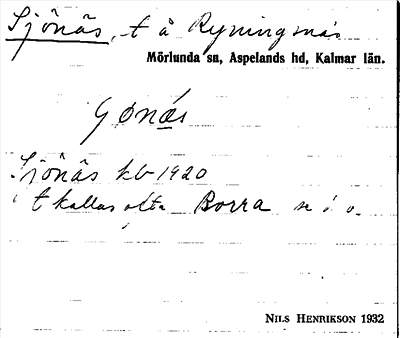 Sjönäs, t å Ryningsnäs
Mörlunda sn, Aspelands hd, Kalmar län.
Sjönäs kb 1920
t kallas ofta Borra se d. o.
NILS HENRIKSON 1932